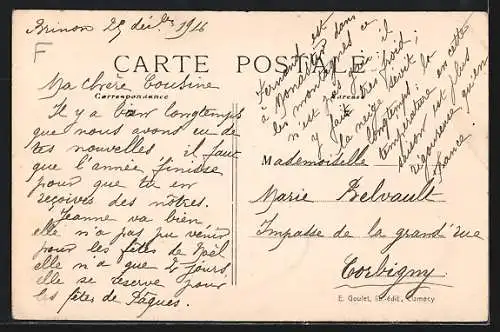 Brinon 29 déc bre 1916
F
CARTE POSTALE
Correspondance
Adresse
Ma chère Cousine
Il y a bien longtemps
que nous avons eu de
tes nouvelles il faut
que l'année finisse
pour que tu en
reçoives des nôtres.
Jeanne va bien,
elle n'a pas pu venir
pour les fêtes de Noël
elle n'a que 2 jours,
elle se réserve pour
les fêtes de Pâques.
Fernand est
à Monastir dans
les montagnes ce
n'est pas gai il
y fait très froid,
la neige devit la
longtemps; la
température en cette
saison est plus
rigoureuse qu'en
France.
Mademoiselle
Marie Delvault
Impasse de la grand'rue
Corbigny
E. Goulet, lib.-édit., Clamecy